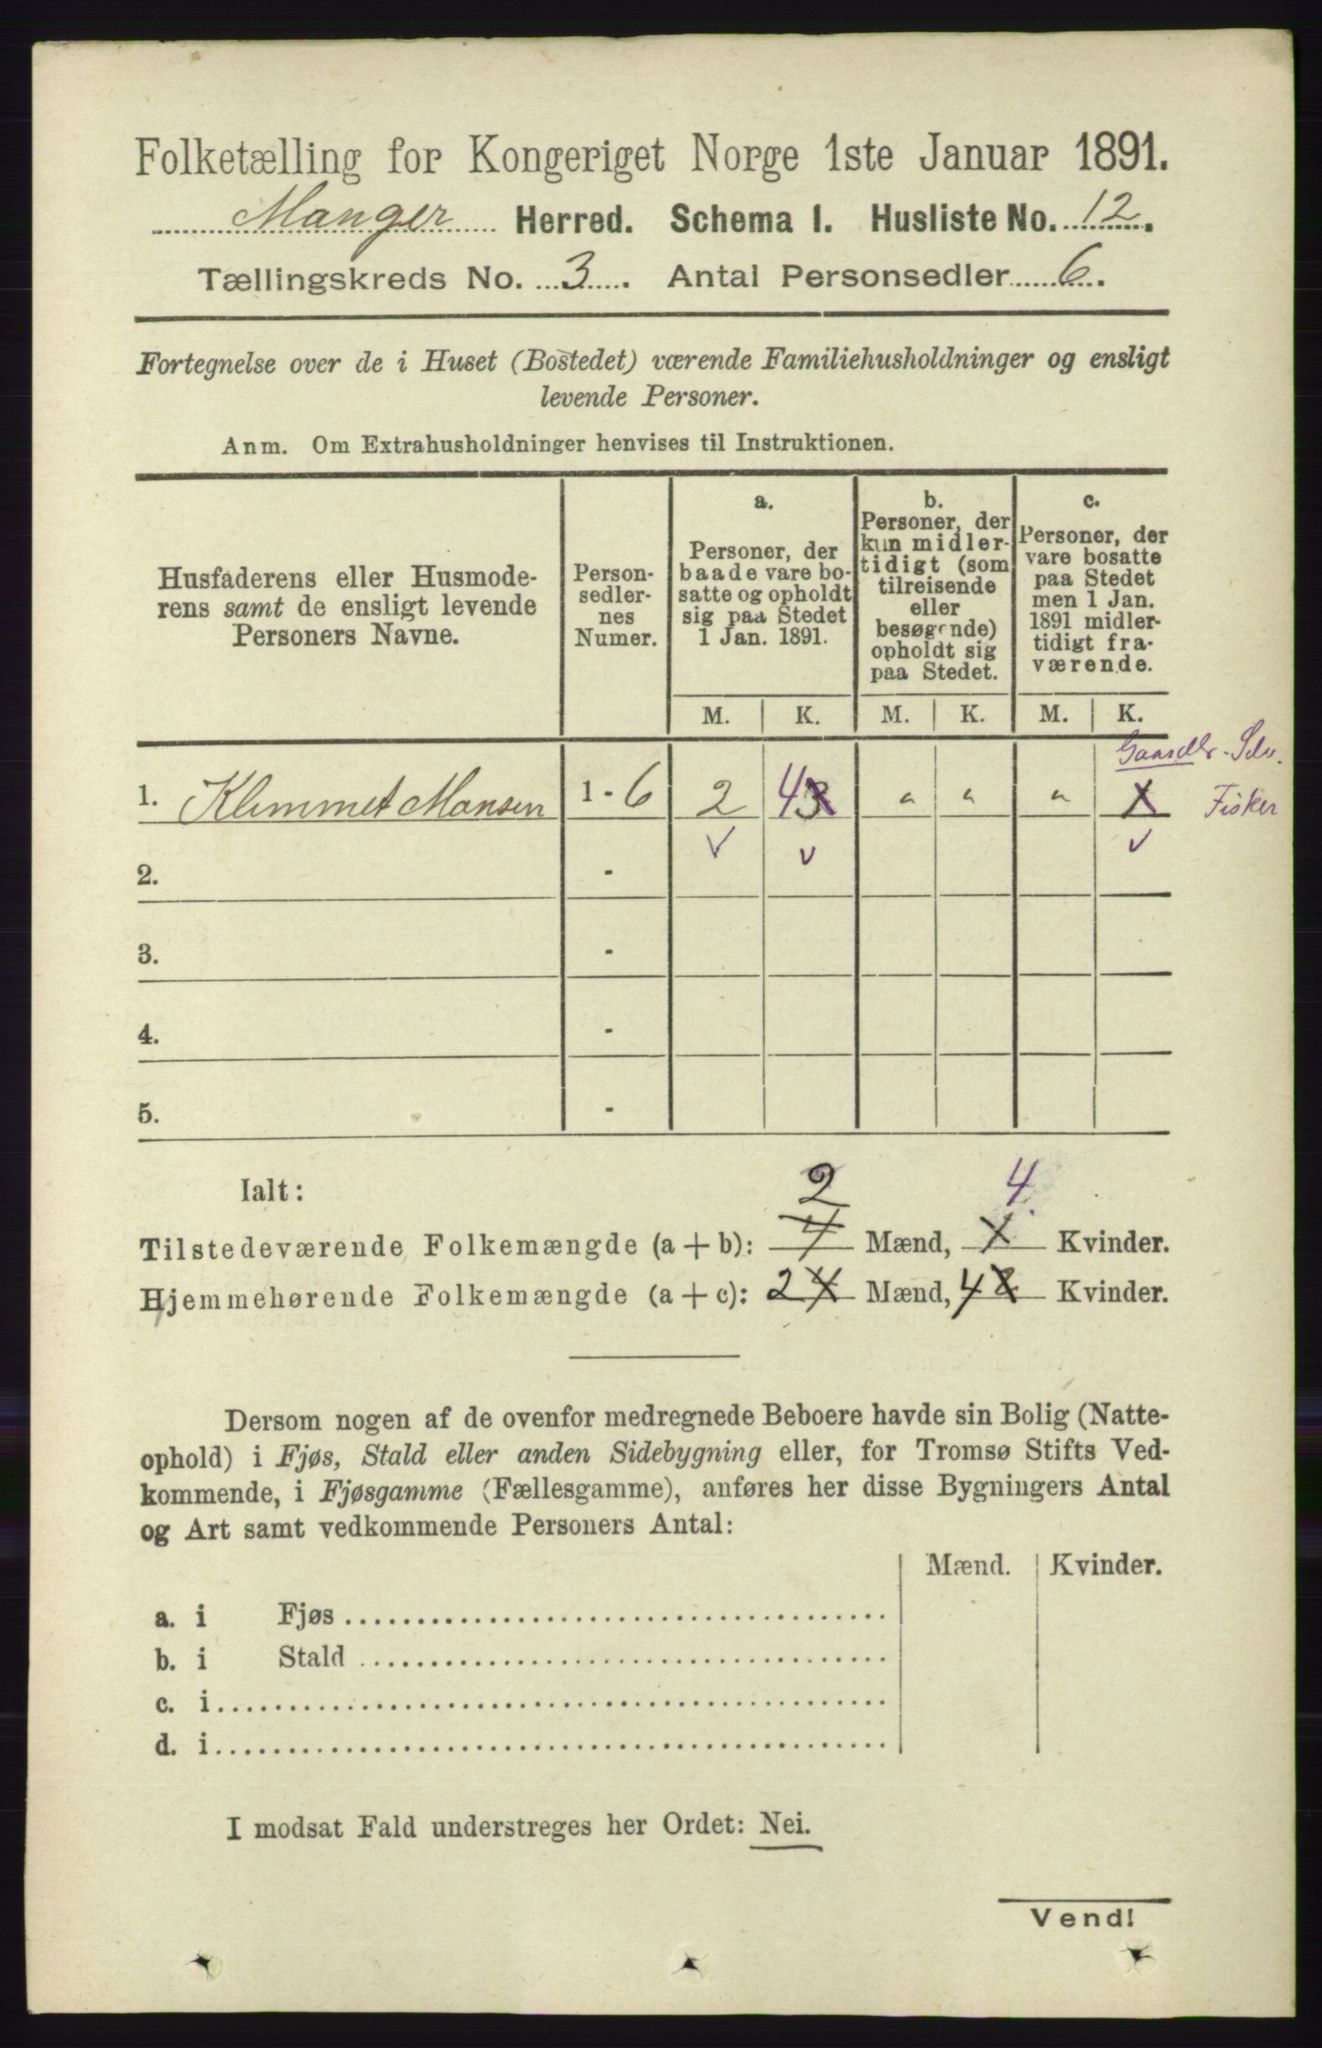 Folketælling for Kongeriget Norge 1ste Januar 1891.
Manger Herred. Schema I. Husliste No. 12.
Tællingskreds No. 3. Antal Personsedler 6.
Fortegnelse over de i Huset (Bostedet) værende Familiehusholdninger og ensligt
levende Personer.
Anm. Om Extrahusholdninger henvises til Instruktionen.
Husfaderens eller Husmode-
rens samt de ensligt levende
Personers Navne.
Person-
sedler-
nes
Numer.
a.
Personer, der
baade vare bo-
satte og opholdt
sig paa Stedet
1 Jan. 1891.
b.
Personer, der
kun midler-
tidigt (som
tilreisende
eller
besøgende)
opholdt sig
paa Stedet.
c.
Personer, der
vare bosatte
paa Stedet
men 1 Jan.
1891 midler-
tidigt fra-
værende.
M. K. M. K. M. K.
1. Klemmet Monsen 1 - 6 2 4 3 " " " 1
Fisker
2. -
3. -
4. -
5. -
Ialt: 2 4
Tilstedeværende Folkemængde (a + b): 4 Mænd, Kvinder.
Hjemmehørende Folkemængde (a + c): 2 4 Mænd, 4 2 Kvinder.
Dersom nogen af de ovenfor medregnede Beboere havde sin Bolig (Natte-
ophold) i Fjøs, Stald eller anden Sidebygning eller, for Tromsø Stifts Ved-
kommende, i Fjøsgamme (Fællesgamme), anføres her disse Bygningers Antal
og Art samt vedkommende Personers Antal:
Mænd. Kvinder.
a. i Fjøs
b. i Stald
c. i
d. i
I modsat Fald understreges her Ordet: Nei.
Vend!